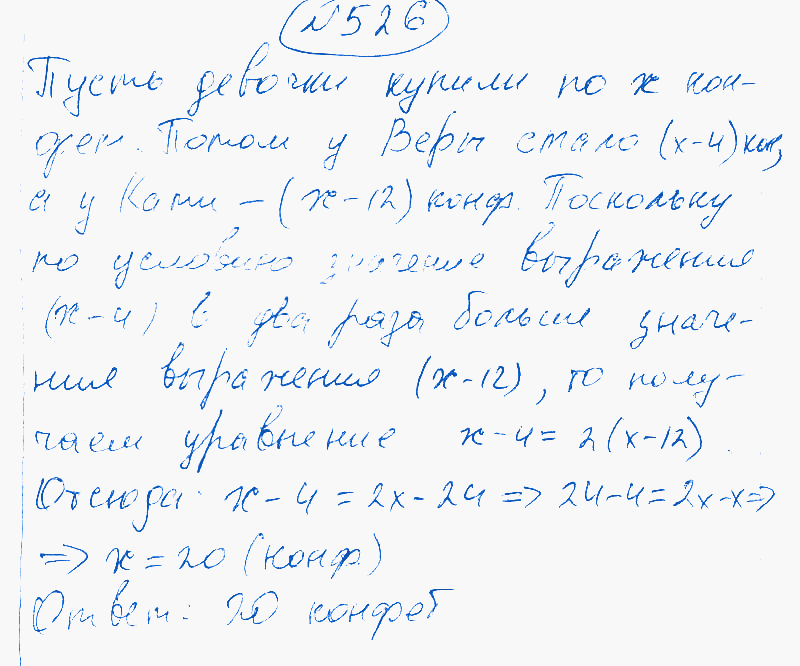 №526
Пусть девочки купили по x кон-
фет. Потом у Веры стало (x-4) кон,
а у Кати – (x-12) конф. Поскольку
по условию значение выражения
(x-4) в два раза больше значе-
ния выражения (x-12), то полу-
чаем уравнение x-4 = 2(x-12).
Отсюда: x-4 = 2x-24 => 24-4=2x-x=>
=> x = 20 (конф.)
Ответ: 20 конфет